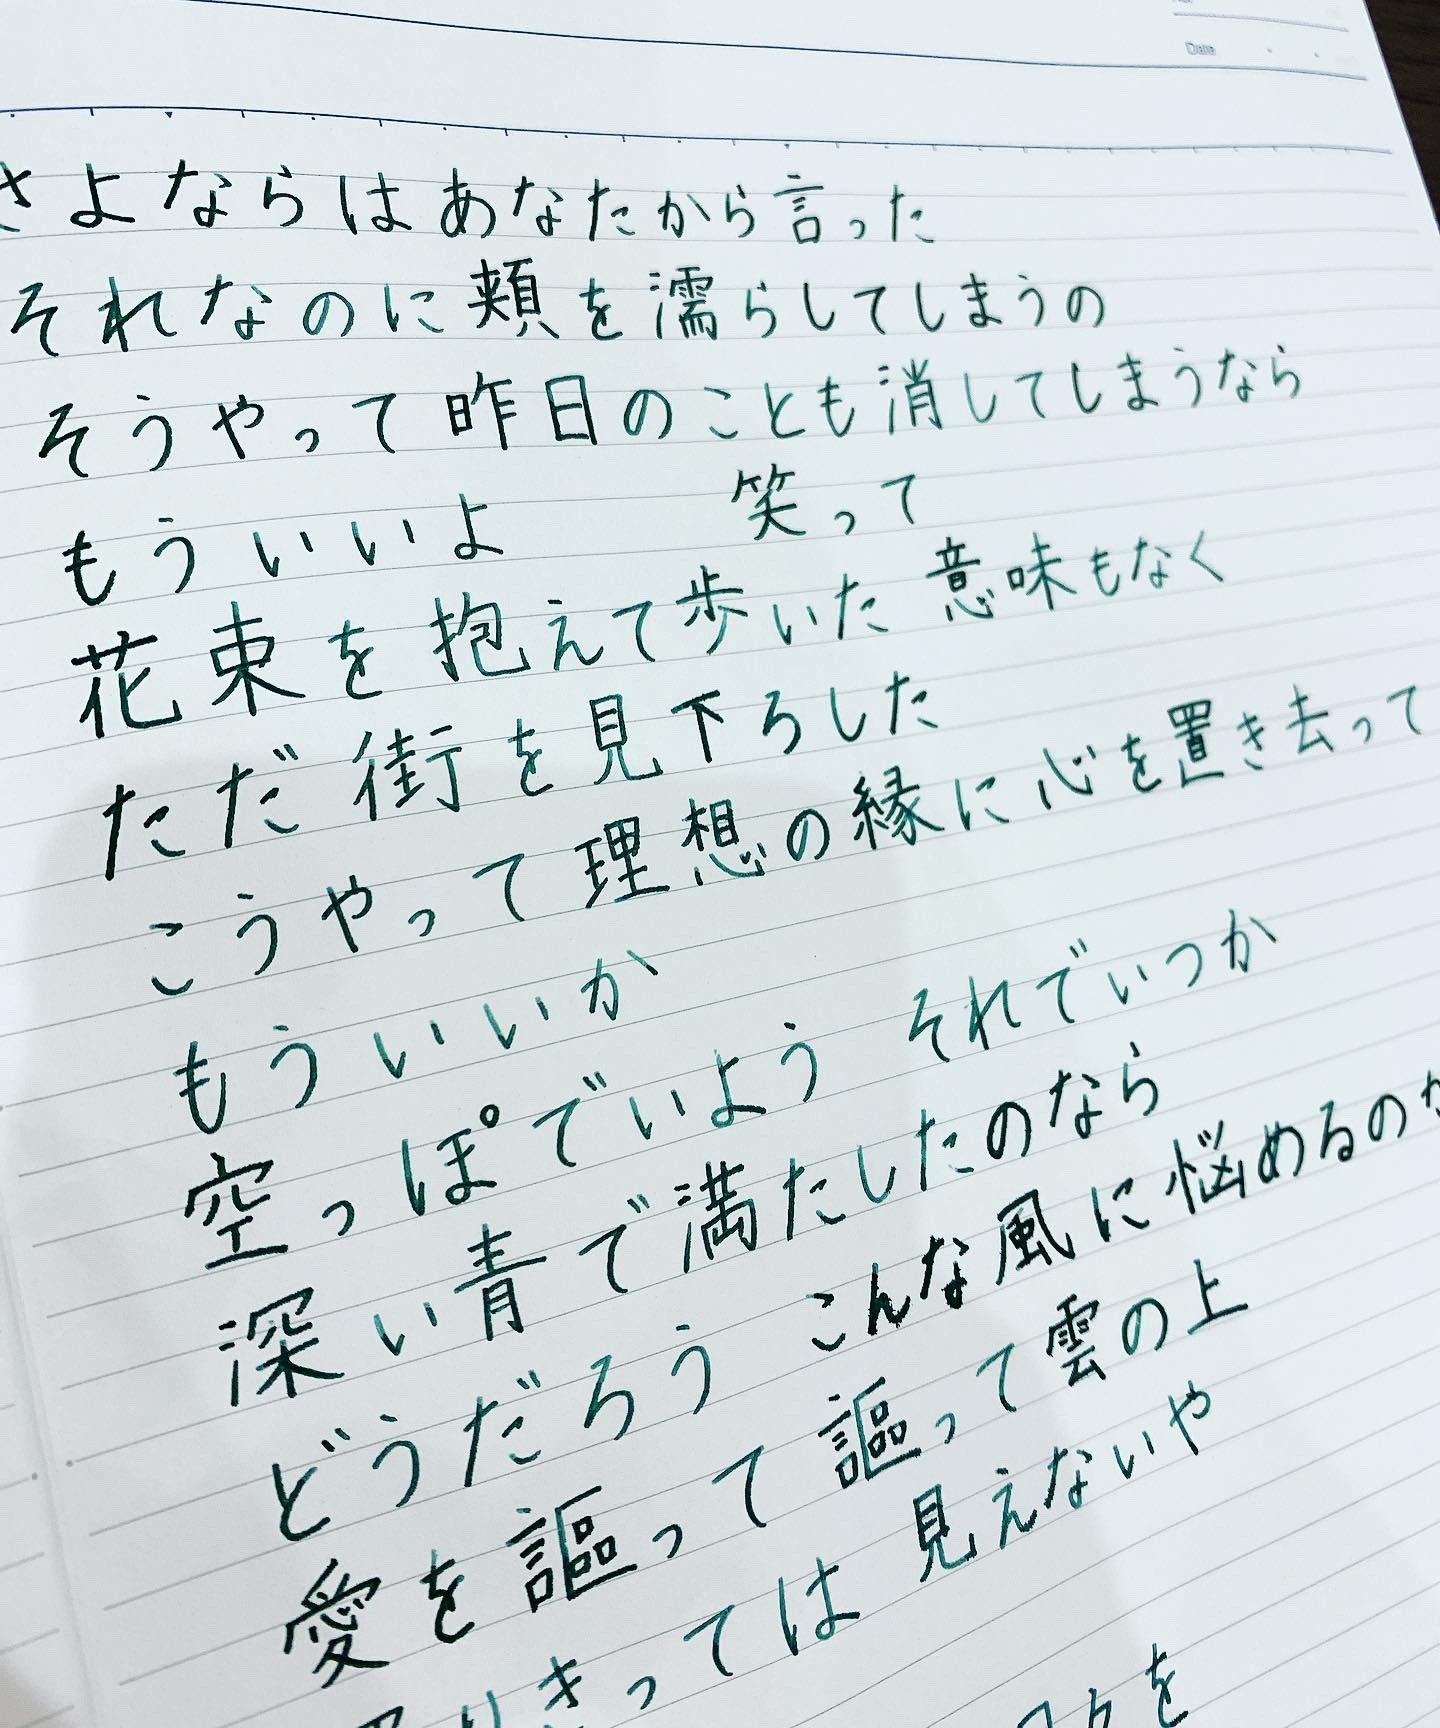 Date
さよならはあなたから言った
それなのに頬を濡らしてしまうの
そうやって昨日のことも消してしまうなら
もういいよ　笑って
花束を抱えて歩いた 意味もなく
ただ街を見下ろした
こうやって理想の縁に心を置き去って
もういいか
空っぽでいよう それでいつか
深い青で満たしたのなら
どうだろう こんな風に悩めるのか
愛を謳って謳って雲の上
りきっては見えないや
を